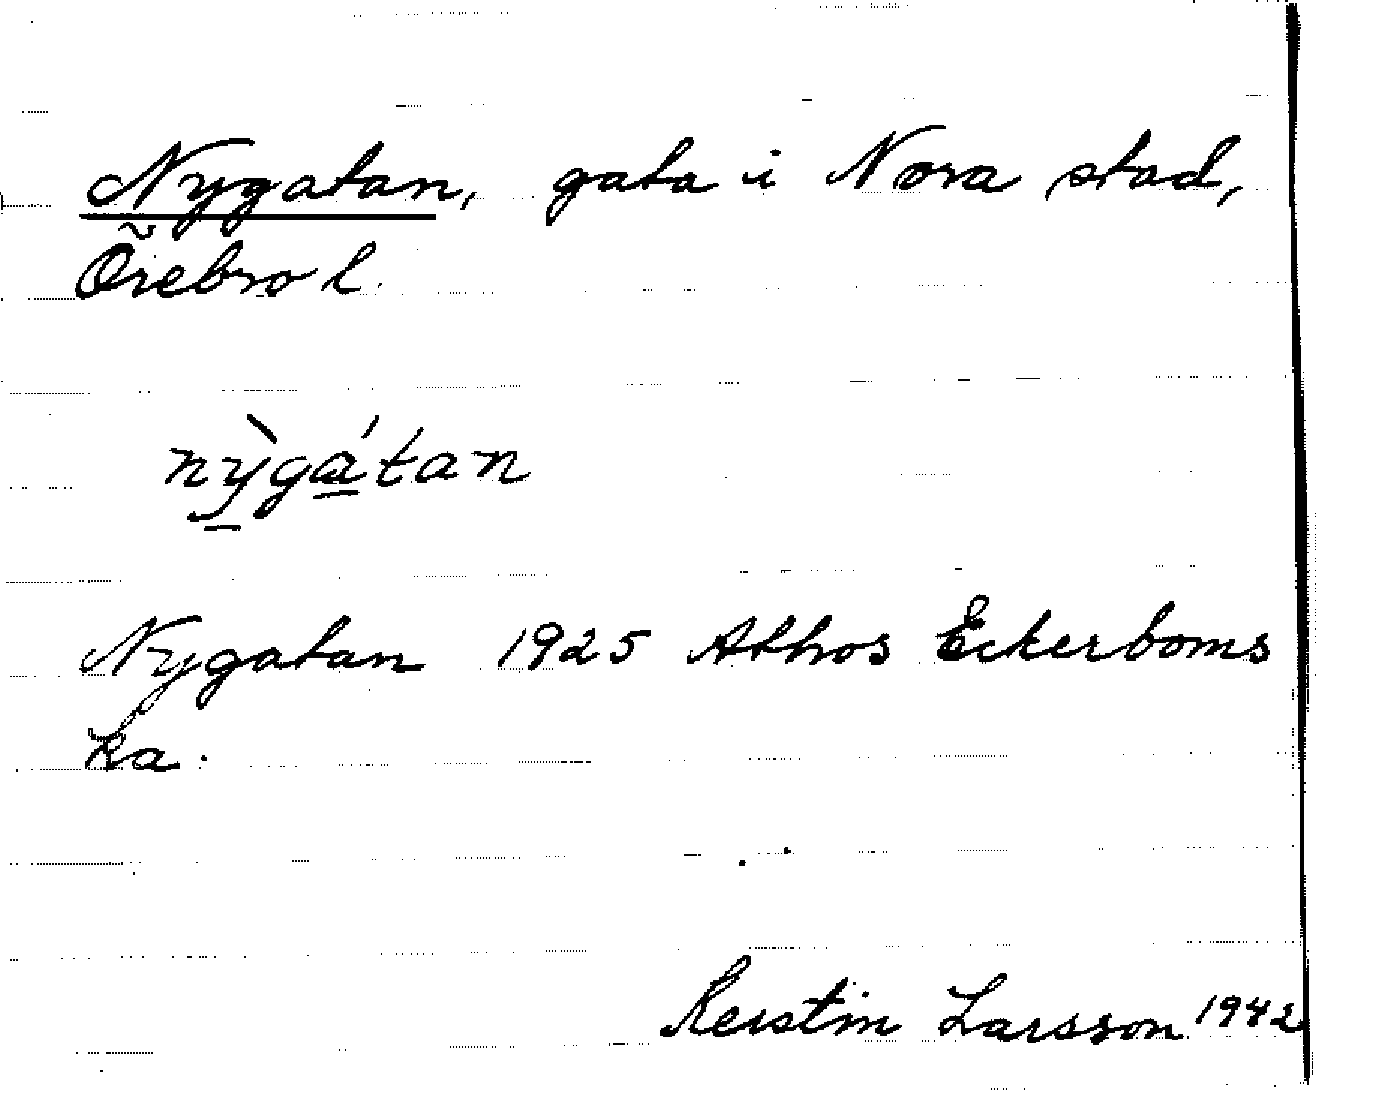 Nygatan, gata i Nora stad,
Örebro l.
nỳ̱gá̱tan
Nygatan 1925 Athos Eckerboms
ka.
Kerstin Larsson 1942